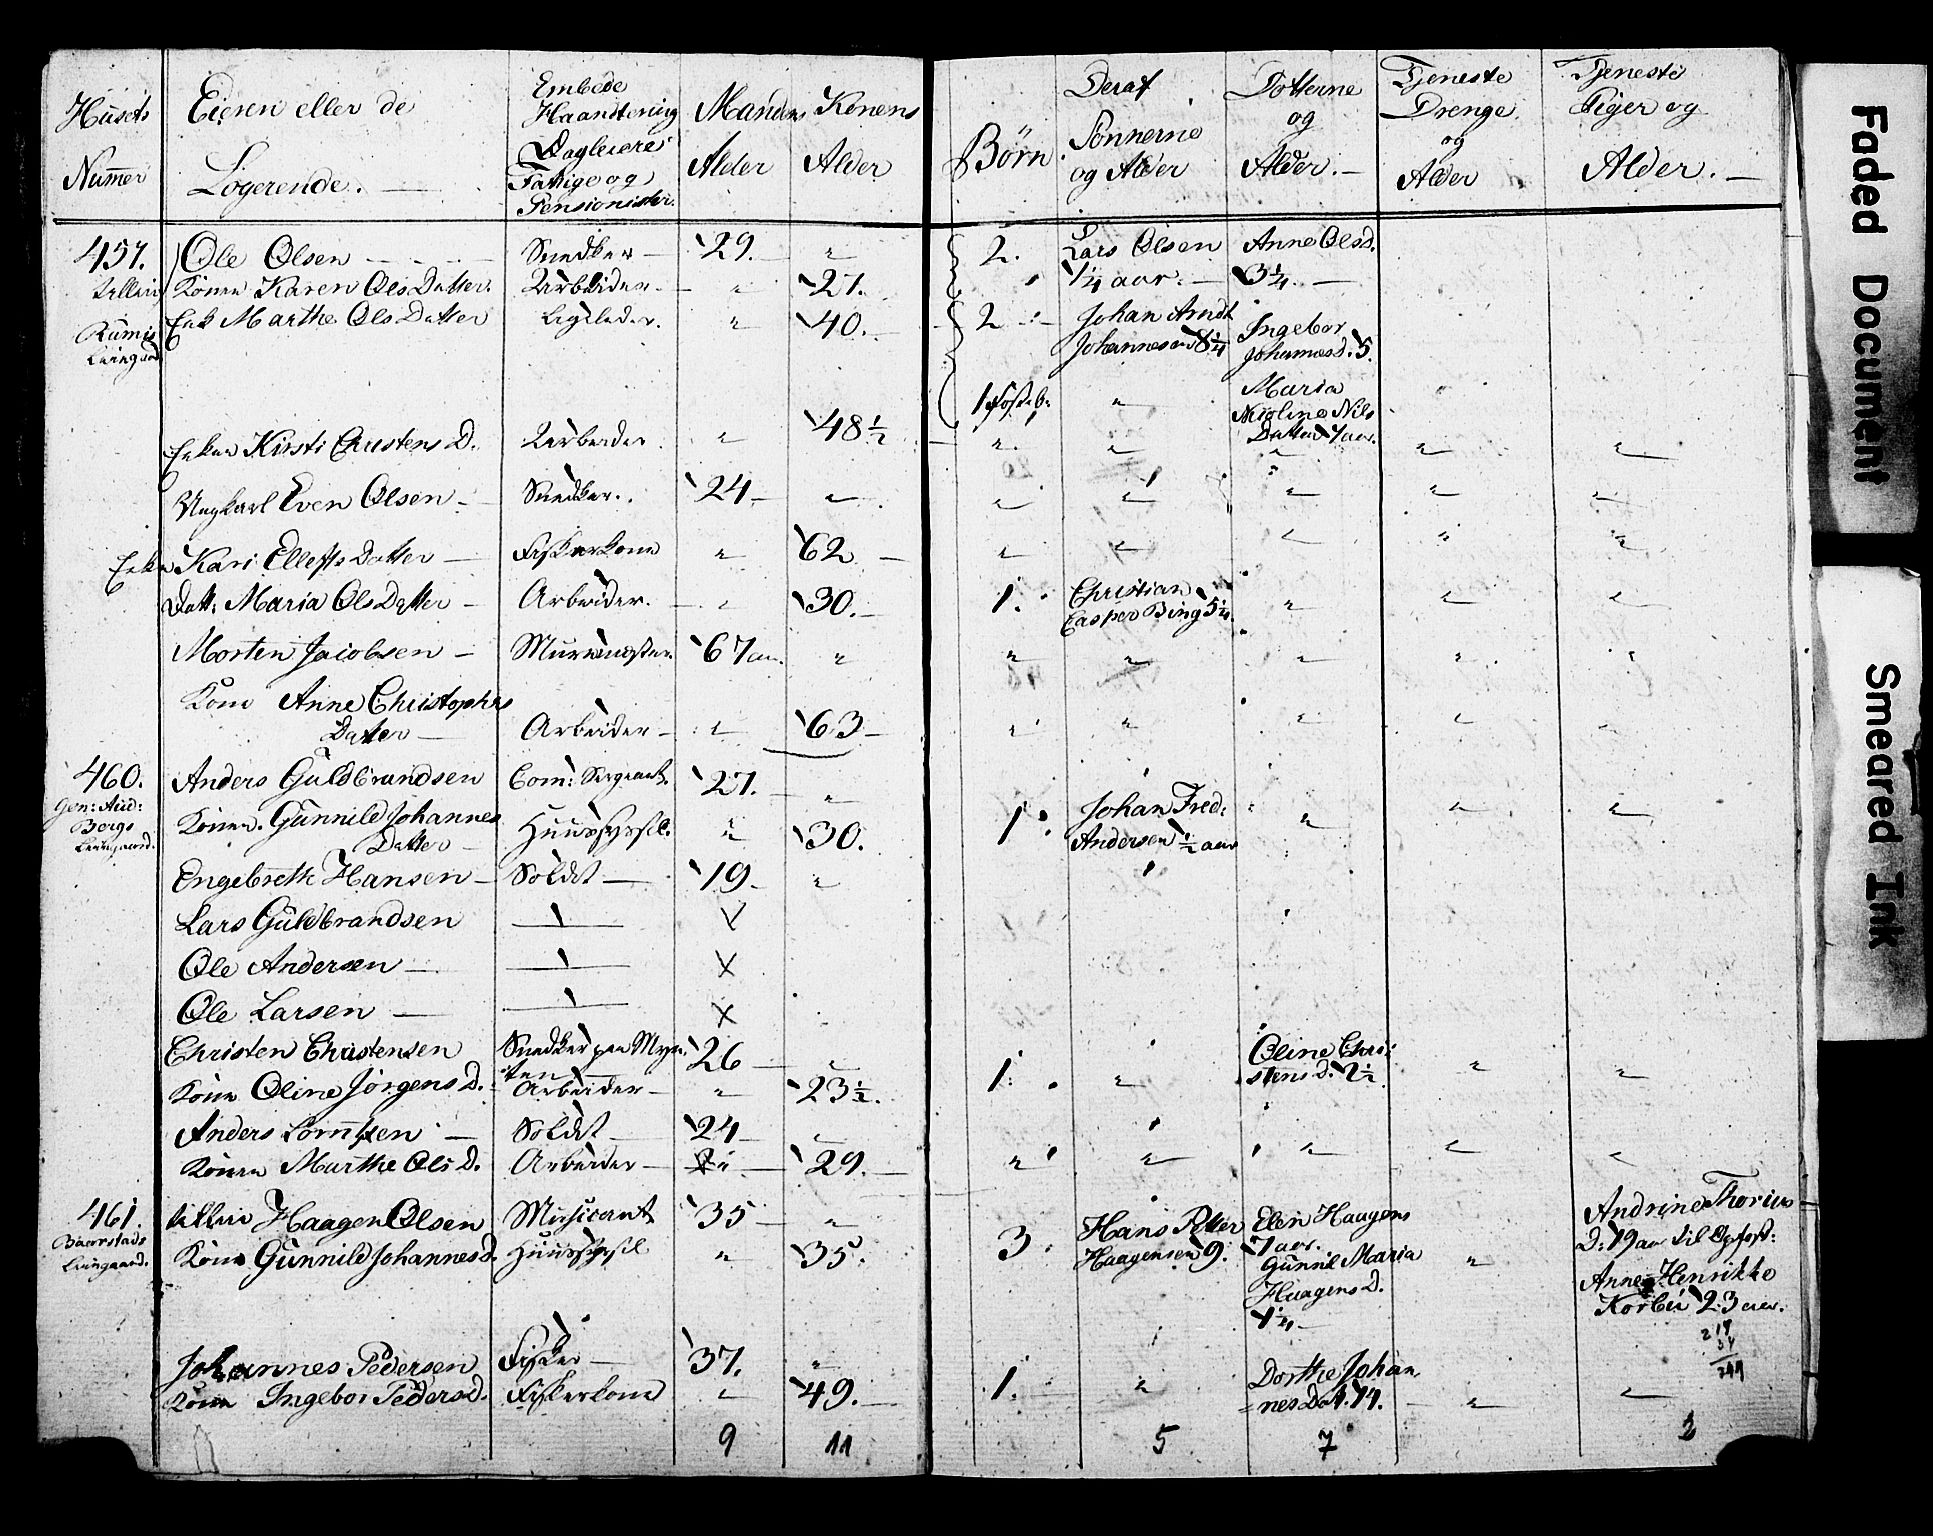 Husets Numer
Eieren eller de Logerende.
Embede Haandtering Dagleiere Fattige og Pensionister.
Mandens Alder
Konens Alder
Børn.
Deraf Sønnerne og Alder
Døtterne og Alder.
Tjeneste Drenge og Alder
Tjeneste Piger og Alder.
457. Ole Olsen Snedker 29. " 2. Lars Olsen Anne Olsd.
Konen Karen Ols Datter. Arbeider " 27. 1/4 aar. 3 1/4.
Enk Marthe Ols Datter " 40. 2 Johan Arndt Johannesen 8 1/4 Ingebor Johannesd. 5.
1 Fosteb: " Maria Nicoline Nils Datter 7 aar.
Enken Kirsti Christens D. Arbeider " 48 1/2 " " " " "
Ungkarl Even Olsen Snedker. 24 " " " " " "
Enke Kari Ellefts Datter Fiskerkone " 62 " " " " "
Datt: Maria Ols Datter Arbeider. " 30. 1. Christian Casper Bing 5 1/4. " " "
Morten Jacobsen Muurmester. 67 aar. " " " " " "
Kone Anne Christophers Datter Arbeider " 63 " " " " "
460. Anders Guldbrandsen Com: Sergeant. 27. "
Gen: Aud: Bergs
Konen. Gunnild Johannes Datter Huushyssel. " 30. 1 Johan Fred: Andersen 1/2 aar " " "
Engebreth Hansen Soldat 19 "
Lars Guldbrandsen
Ole Andersen X
Ole Larsen X
Christen Christensen Snedker paa 26 " 1. " Oline Christens d. 2 1/2 " "
Kone Oline Jørgens D. Arbeider " 23 1/2.
Anders Lorntzen Soldat 24 "
Konen Marthe Ols D. Arbeider 29. " " " " "
461. Haagen Olsen Musicant 35 " 3. Hans Petter Haagensen 9. Elen Haagens 7 aar. " Andrine Thorius D: 19 aar til
Kone Gunnild Johannesd. Huushyssel " 35. Gunnil Maria Haagens D. 1/4 Anne Henrikke 23 aar.
Johannes Pedersen Fisker 37. "
Kone Ingebor Pedersd. Fiskerkone " 49. 1. " Dorthe Johannes Dat. 14. " "
9 11 5 7 2
Faded Document
Smeared Ink